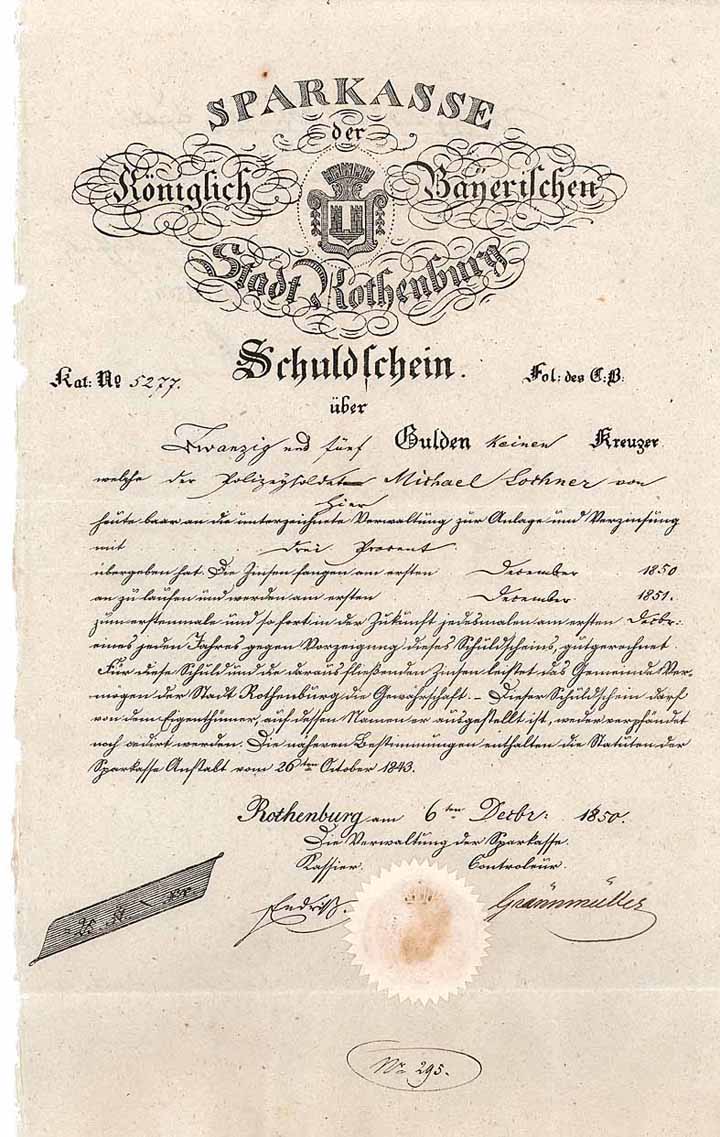 SPARKASSE
der
Königlich Bayerischen
Stadt Rothenburg
Schuldschein.
Kat: No 5277. Fol: des C: B:
über
Zwanzig und fünf Gulden keinen Kreuzer
welche der Polizeysoldat Michael Lochner von
hier
heute baar an die unterzeichnete Verwaltung zur Anlage und Verzinsung
mit drei Procent
übergeben hat. Die Zinsen fangen am ersten December 1850
an zu laufen und werden am ersten December 1851.
zum erstenmale und sofort in der Zukunft jedesmalen am ersten Decbr:
eines jeden Jahres gegen Vorzeigung dieses Schuldscheins, gutgerechnet.
Für diese Schuld und die daraus fließenden Zinsen leistet das Gemeinde Ver-
mögen der Stadt Rothenburg die Gewährschaft. – Dieser Schuldschein darf
von dem Eigenthümer, auf dessen Namen er ausgestellt ist, weder verpfändet
noch cedirt werden. Die näheren Bestimmungen enthalten die Statuten der
Sparkasse Anstalt vom 26ten October 1843.
Rothenburg am 6ten Decbr: 1850.
Die Verwaltung der Sparkasse.
Kassier. Controleur.
No 295.